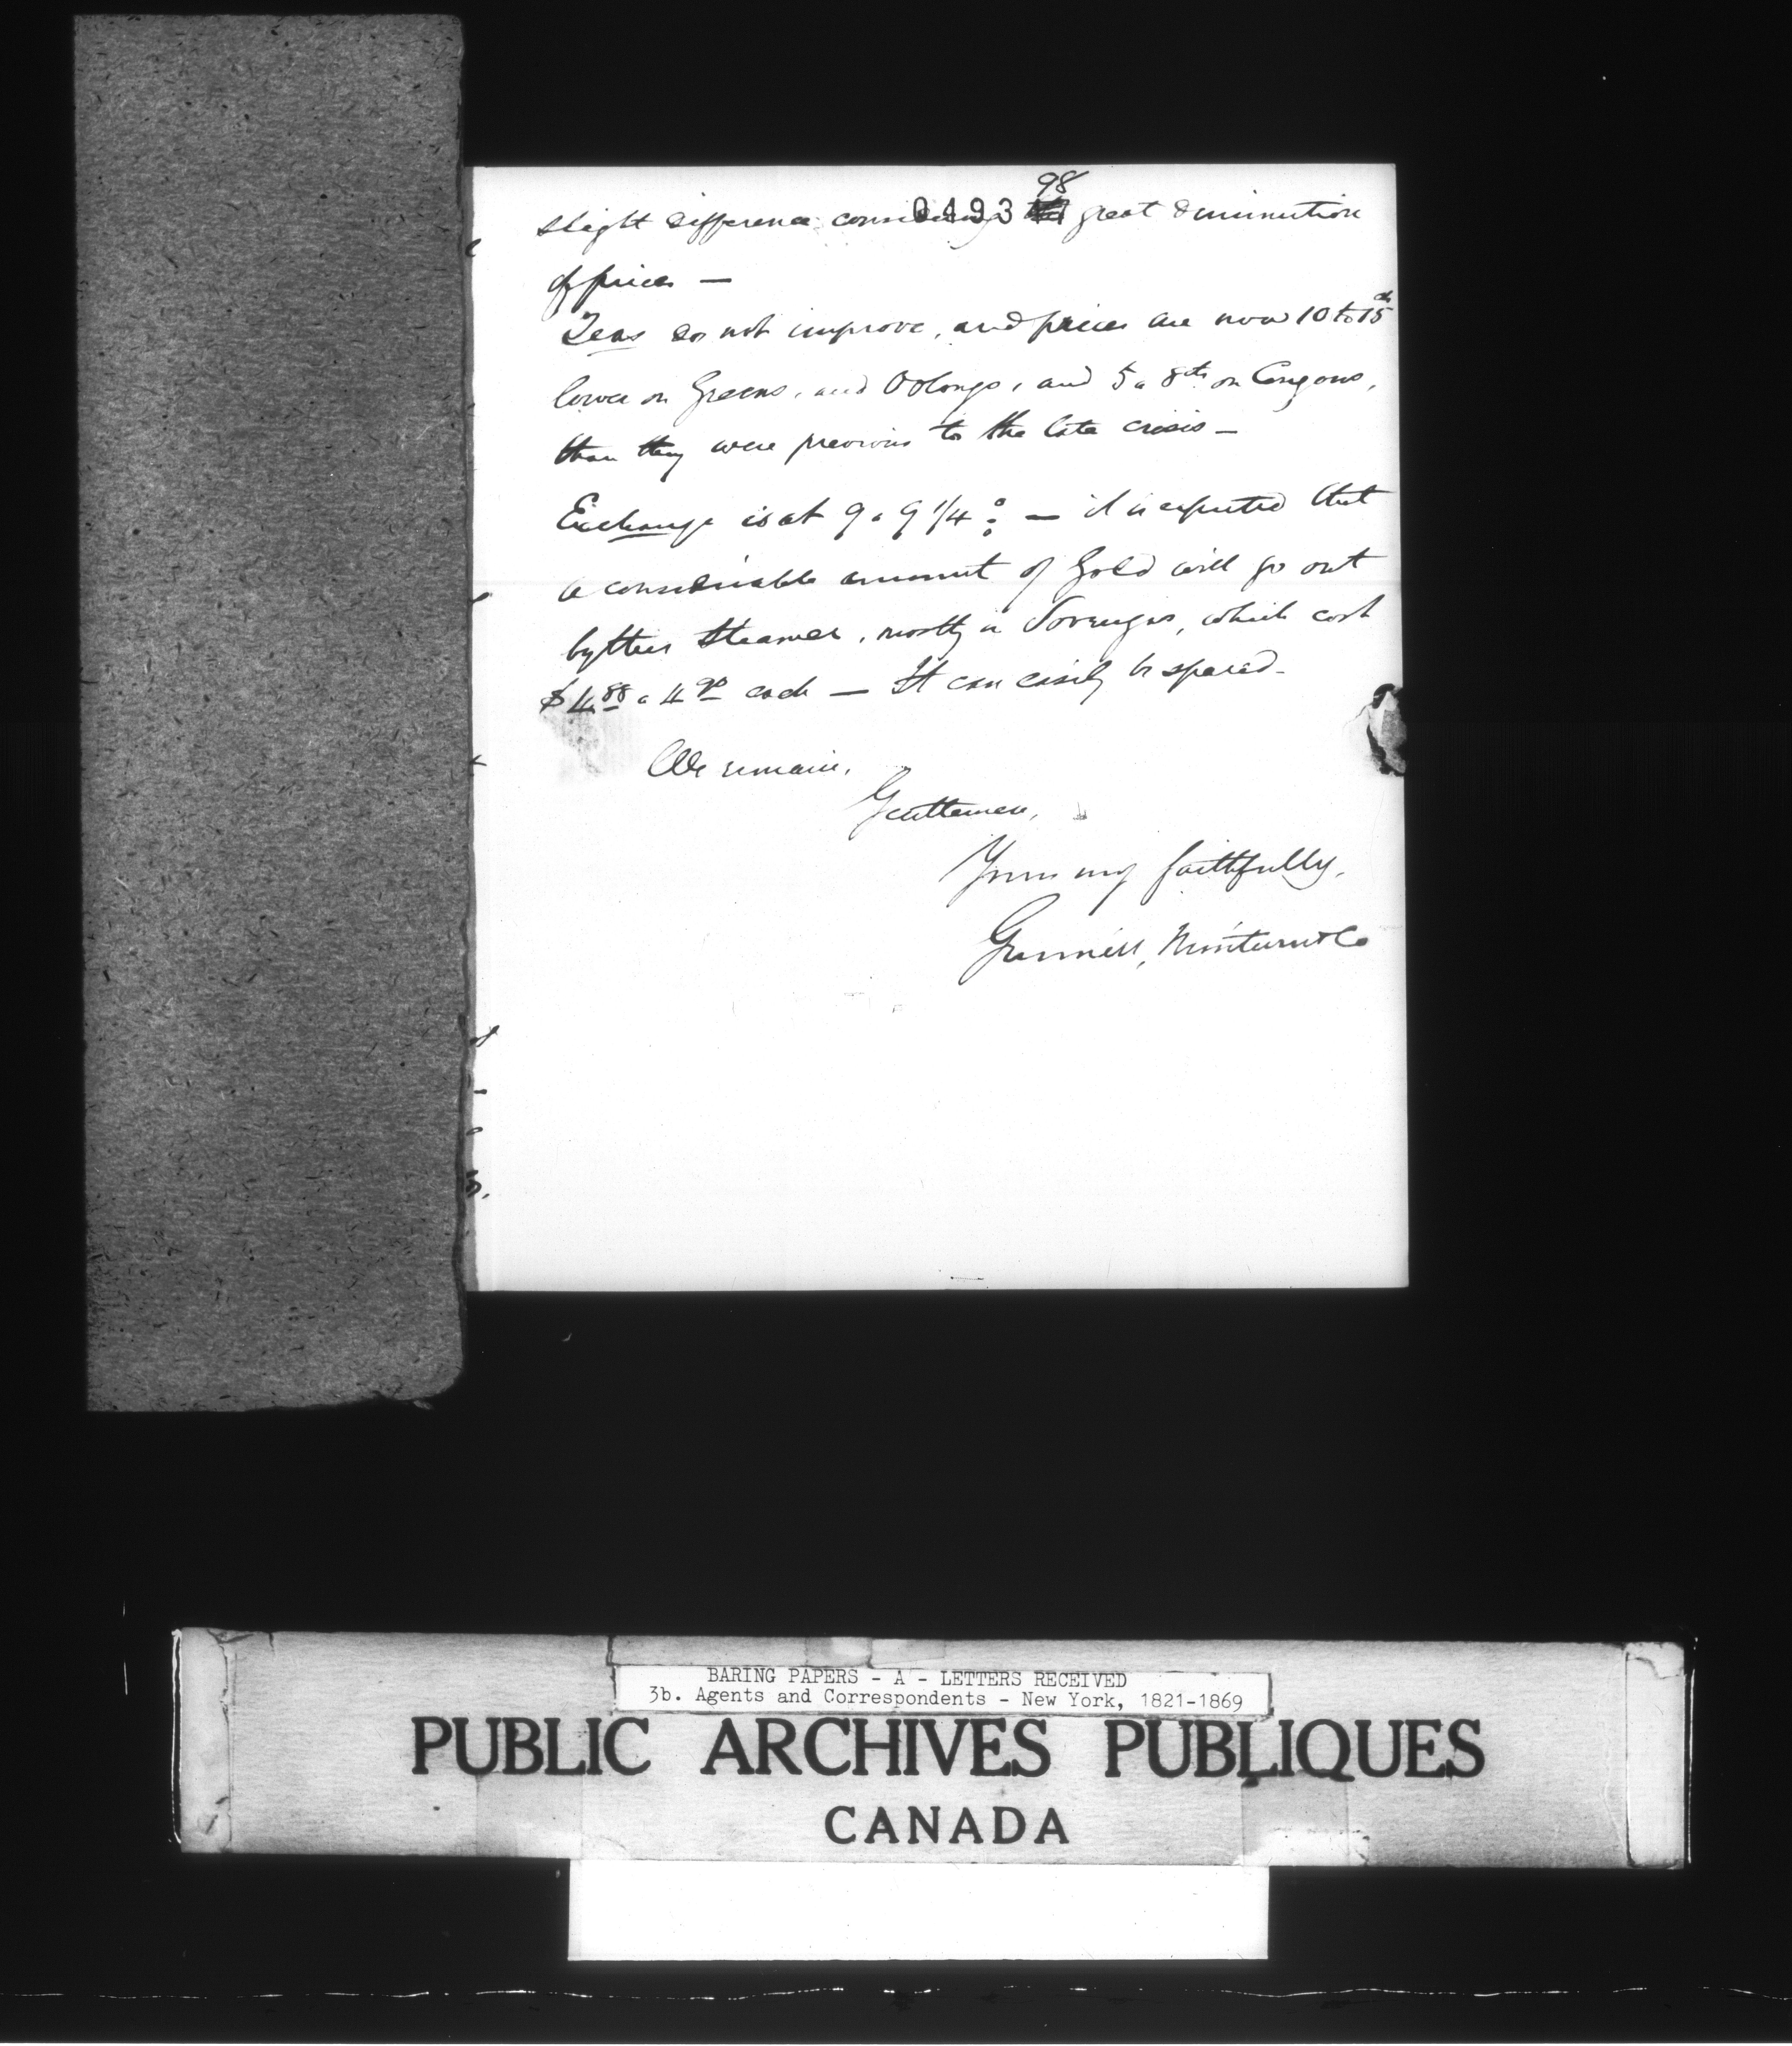 98
049347
slight difference considering the great diminution
of prices —
Teas do not improve, and prices are now 10 to 15 cts
lower on Greens, and Oolongs, and 5 a 8 cts on Congous,
than they were previous to the late crisis —
Exchange is at 9 a 9 1/4 % — it is expected that
a considerable amount of Gold will go out
by this steamer, mostly in Sovereigns, which cost
$4.88 a 4.90 each — It can easily be spared —
We remain,
Gentlemen,
Yours very faithfully,
Grinnell, Minturn & Co
BARING PAPERS - A - LETTERS RECEIVED
3b. Agents and Correspondents - New York, 1821-1869
PUBLIC ARCHIVES PUBLIQUES
CANADA